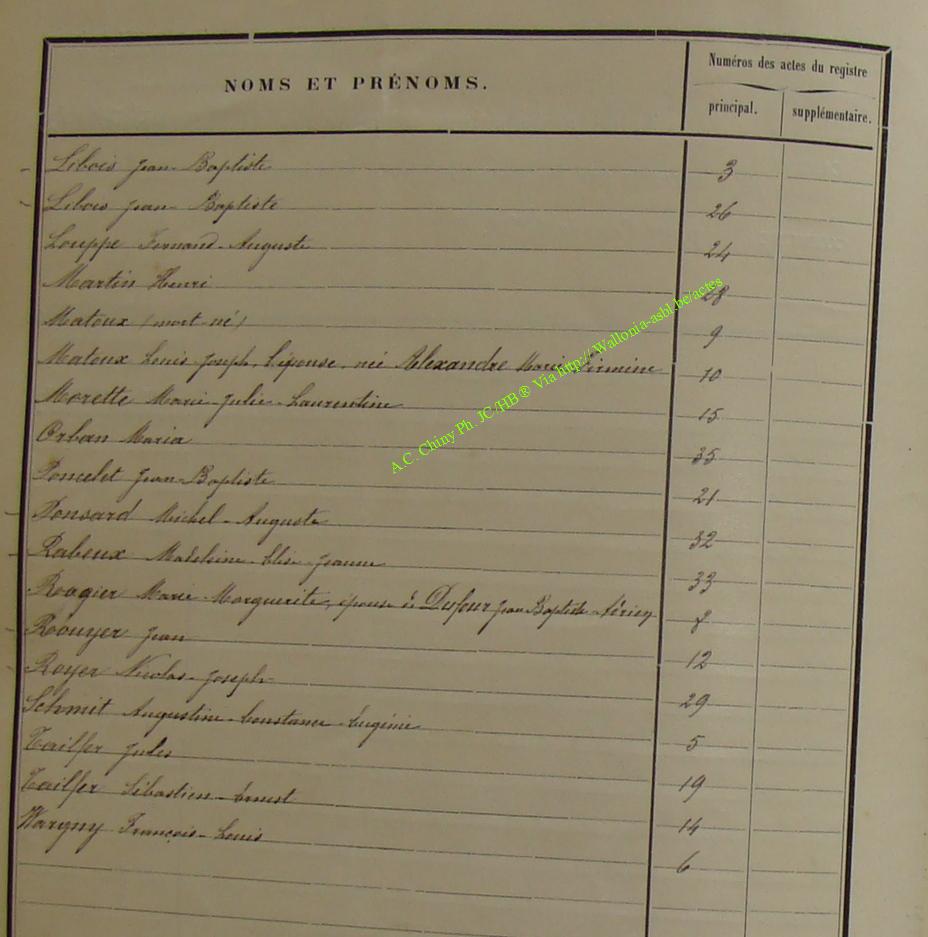 NOMS ET PRÉNOMS. Numéros des actes du registre
principal. supplémentaire.
Libois Jean-Baptiste 3
Libois Jean-Baptiste 26
Louppe Fernand-Auguste 24
Martin Henri 28
Matoux (mort-né) 9
Matoux Louis Joseph, l'épouse, née Alexandre Marie Firmine 10
Morette Marie-Julie-Laurentine 15
Orban Maria 35
Poncelet Jean-Baptiste 21
Ponsard Michel-Auguste 32
Rabeux Madeleine-Elise-Jeanne 33
Rougier Marie Marguerite, épouse de Dufour Jean Baptiste 8
Roouyer Jean 12
Royer Nicolas-Joseph 29
Schmit Augustine-Constance-Eugénie 5
Tailfer Jules 19
Tailfer Sébastien-Ernest 14
Wargny François-Louis 6
A.C. Chiny Ph. JC/HB® Via http://Wallonia-asbl.be/actes